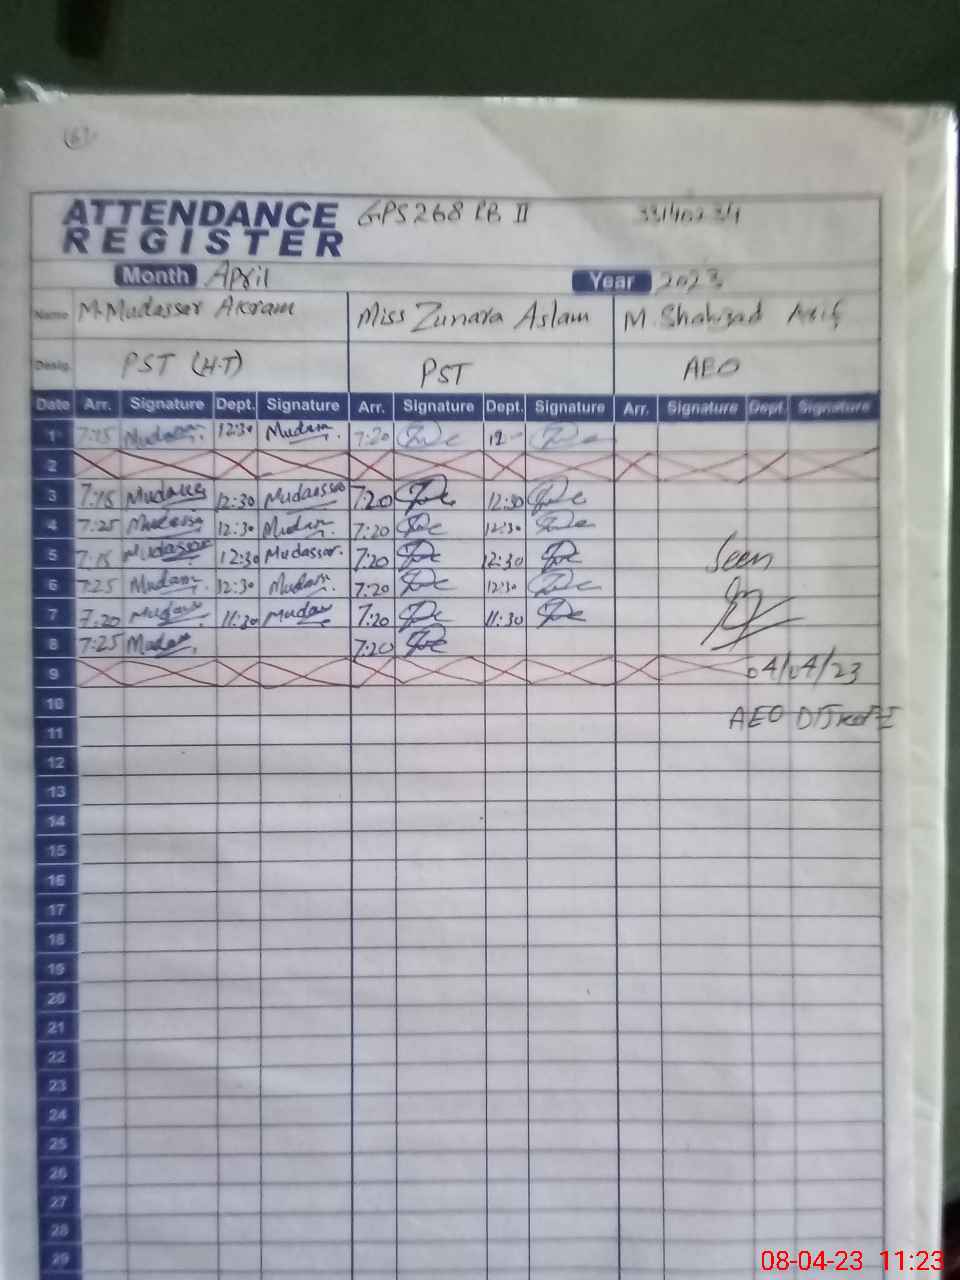 ATTENDANCE GPS 268 RB II
REGISTER
Month April Year 2023
Name M. Mudassar Akram Miss Zunara Aslam M. Shahzad Asif
Desig. PST (H-T) PST AEO
Date Arr. Signature Dept. Signature Arr. Signature Dept. Signature Arr. Signature Dept. Signature
1 7:15 Mudassar. 12:30 Mudassar. 7:20 12
2
3 7:15 Mudassar 12:30 Mudassar 7:20 12:30
4 7:25 Mudassar 12:30 Mudassar 7:20 12:30
5 7:15 Mudassar 12:30 Mudassar. 7:20 12:30 Seen
6 7:25 Mudassar. 12:30 Mudassar. 7:20 12:30
7 7:20 Mudassar 11:30 Mudassar 7:20 11:30
8 7:25 Mudassar. 7:20
9 04/04/23
10 AEO
11
12
13
14
15
16
17
18
19
20
21
22
23
24
25
26
27
28
29
08-04-23 11:23